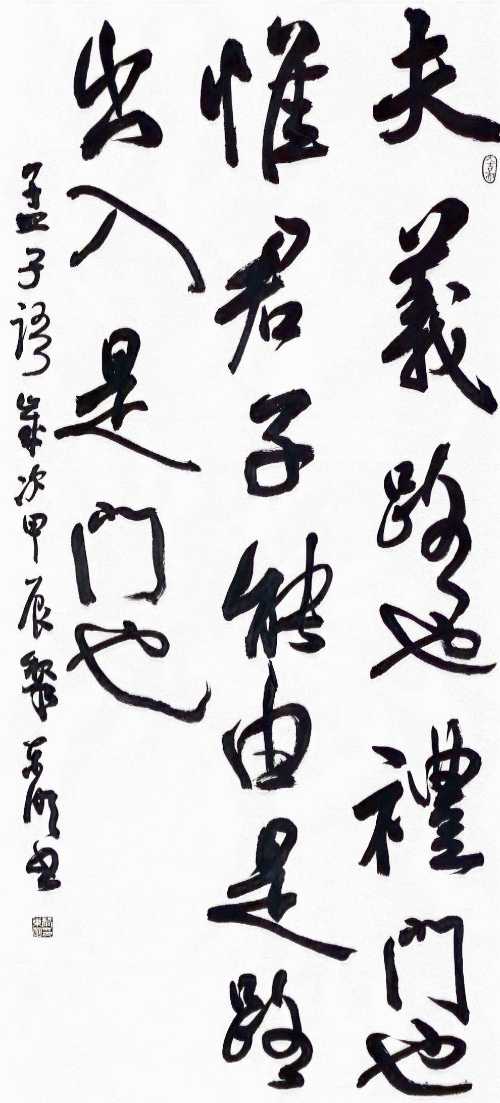 夫義路也禮門也
惟君子能由是路
出入是門也
孟子語歲次甲辰黎东明书